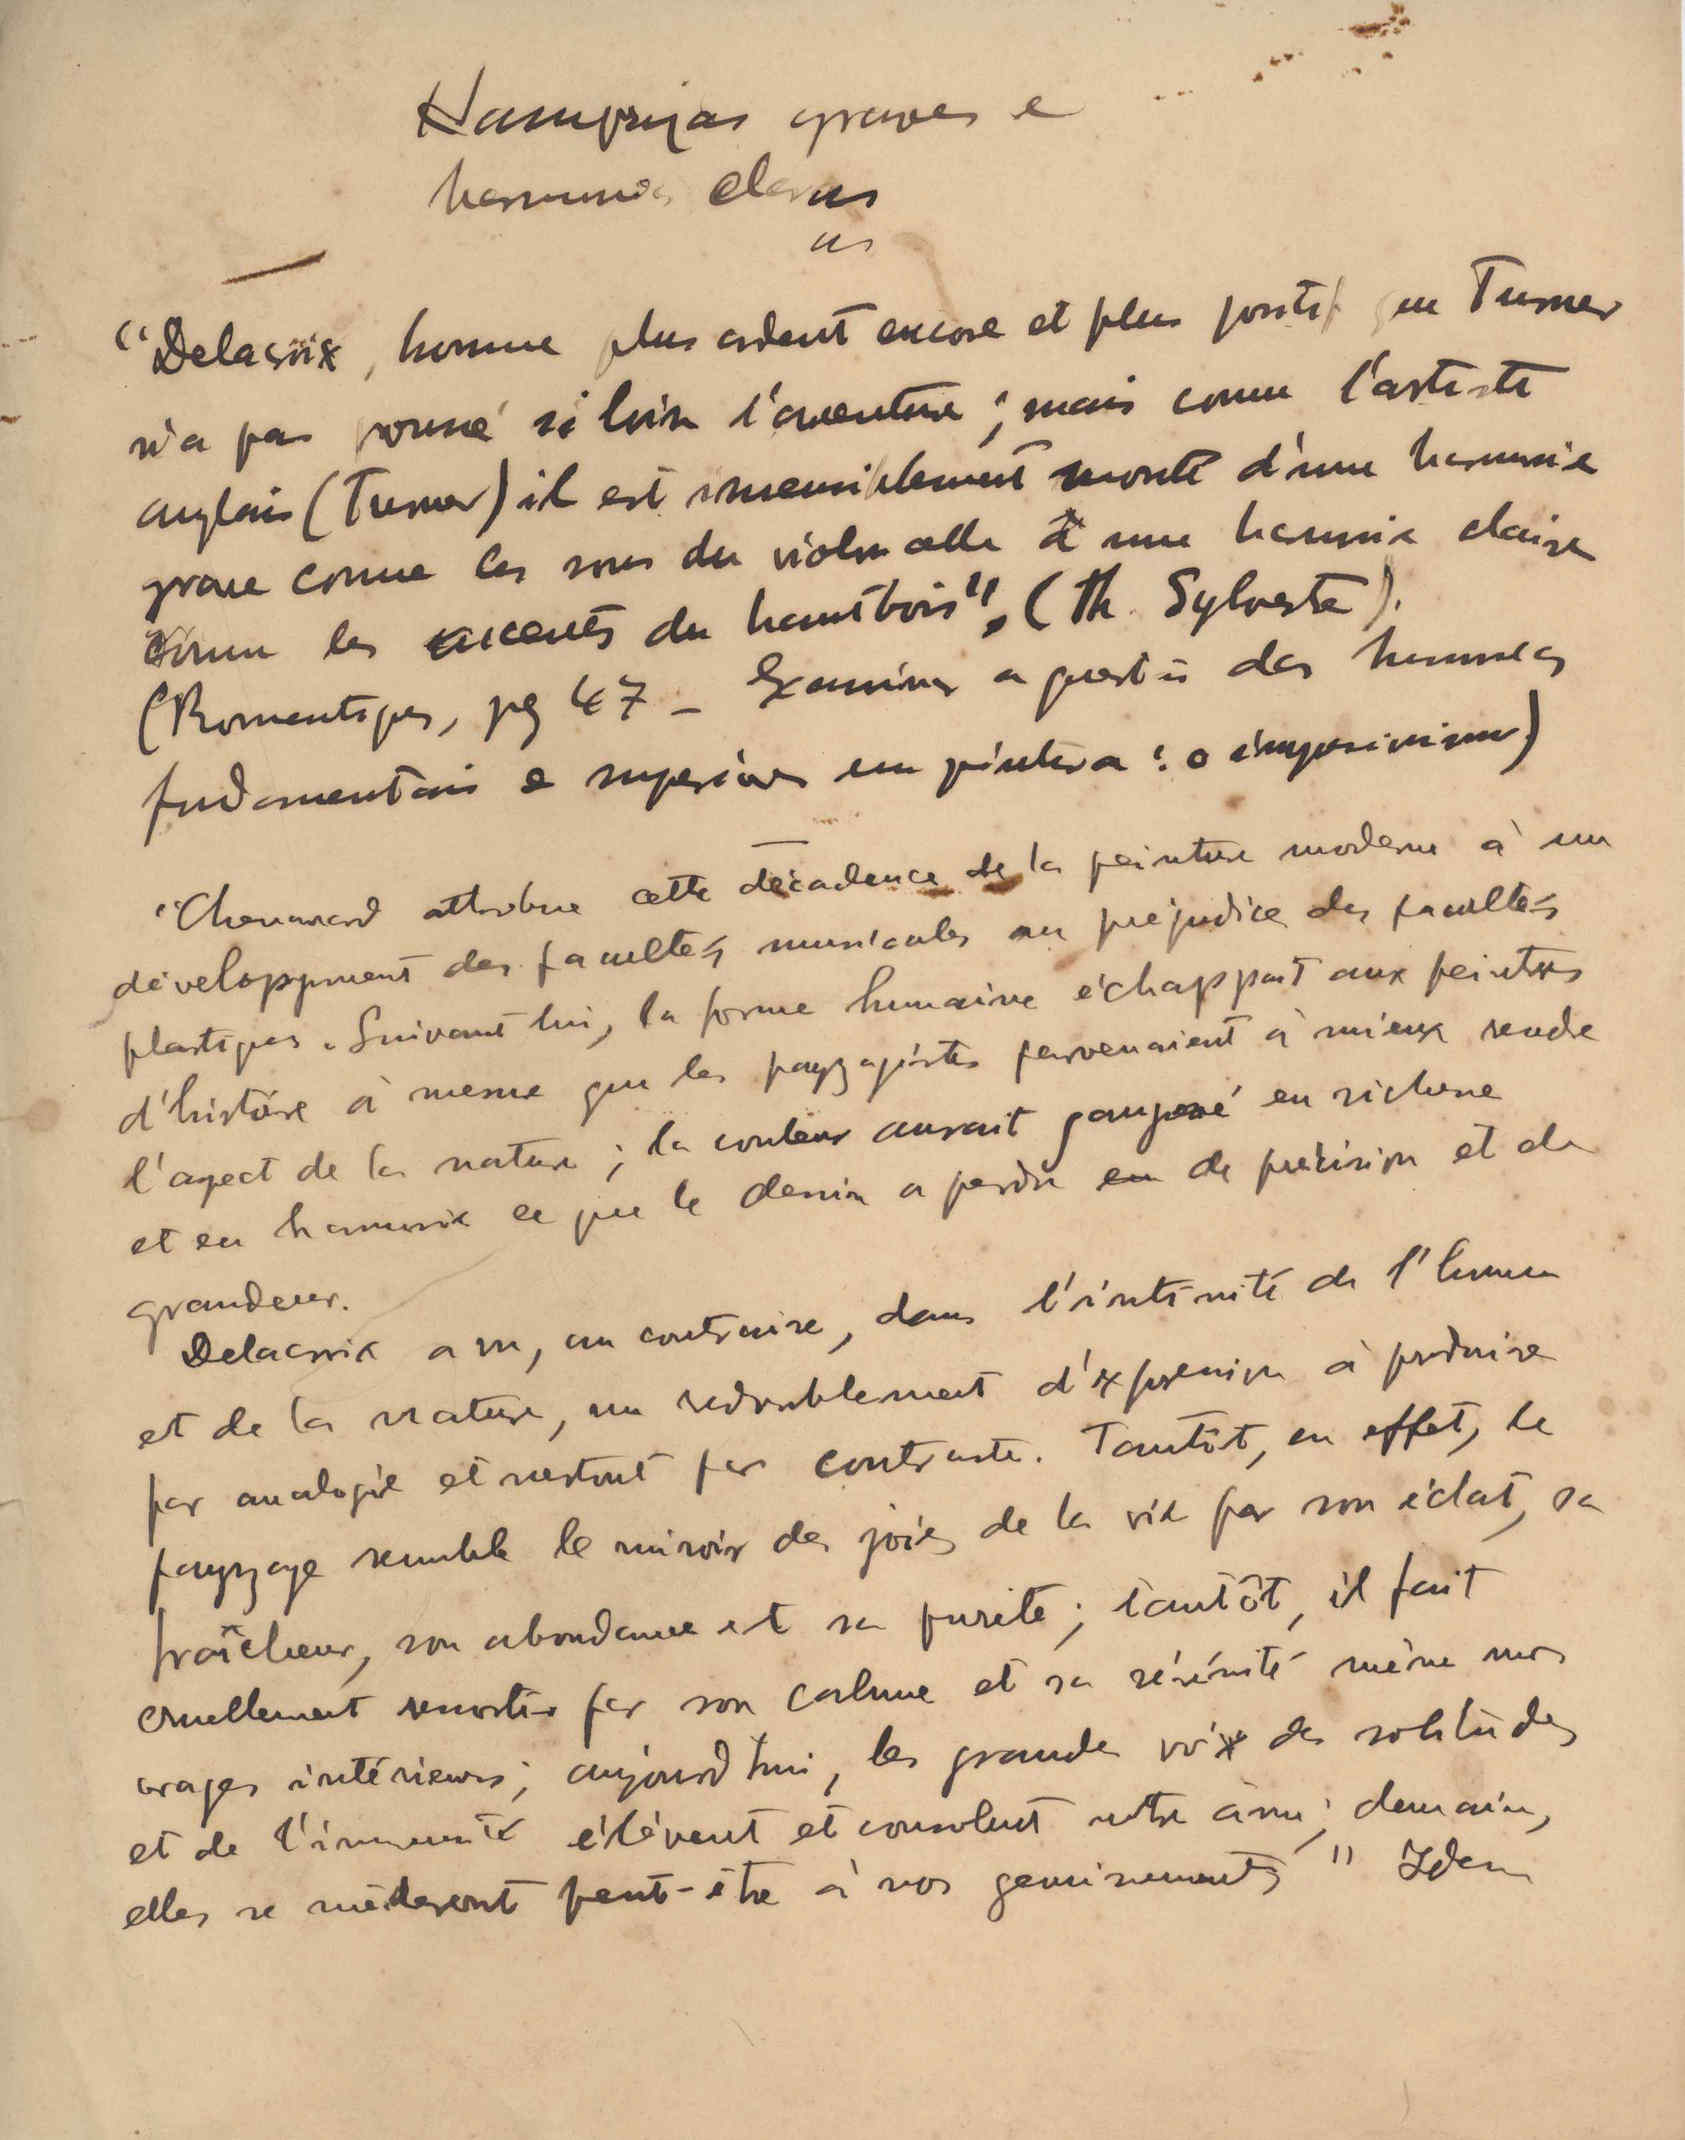 Harmonias graves e
harmonias claras
as
"Delacroix, homme plus ardent encore et plus positif que Turner
n'a pas poussé si loin l'aventure ; mais comme l'artiste
anglais (Turner) il est insensiblement monté d'une harmonie
grave comme les sons du violoncelle à une harmonie claire
comme les accents du hautbois". (Th. Sylvestre).
(Romantiques, pg 47 - Examinar a questão das harmonias
fundamentais e superiores em pintura : o impressionismo)
"Chenavard attribue cette décadence de la peinture moderne à un
développment des facultés musicales au préjudice des facultés
plastiques. Suivant lui, la forme humaine échappait aux peintres
d'histoire à mesure que les payzagistes parvenaient à mieux rendre
l'aspect de la nature ; la couleur aurait gagné en richesse
et en harmonie ce que le dessin a perdu en de précision et de
grandeur.
Delacroix a vu, au contraire, dans l'intimité de l'homme
et de la nature, un redoublement d'expression à produire
par analogie et surtout par contraste. Tantôt, en effet, le
payzage semble le miroir des joies de la vie par son éclat, sa
fraîcheur, son abondance et sa pureté ; tantôt, il fait
cruellement ressortir par son calme et sa sérénité même nos
orages intérieurs ; aujourd'hui, les grandes voix des solitudes
et de l'immensité élèvent et consolent notre âme ; demain,
elles se mêleront peut-être à nos gemissements" Idem